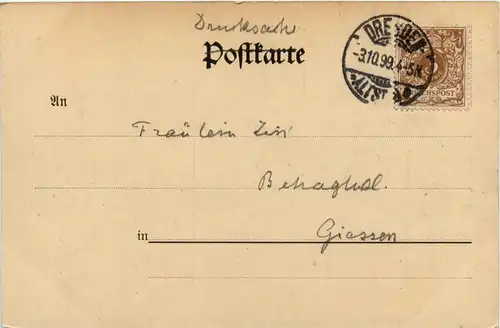 Drucksache
Postkarte
DRESDEN
-3.10.99.4-5N.
ALTST.
REICHSPOST
An
Fräulein
Behaghel.
in Giessen